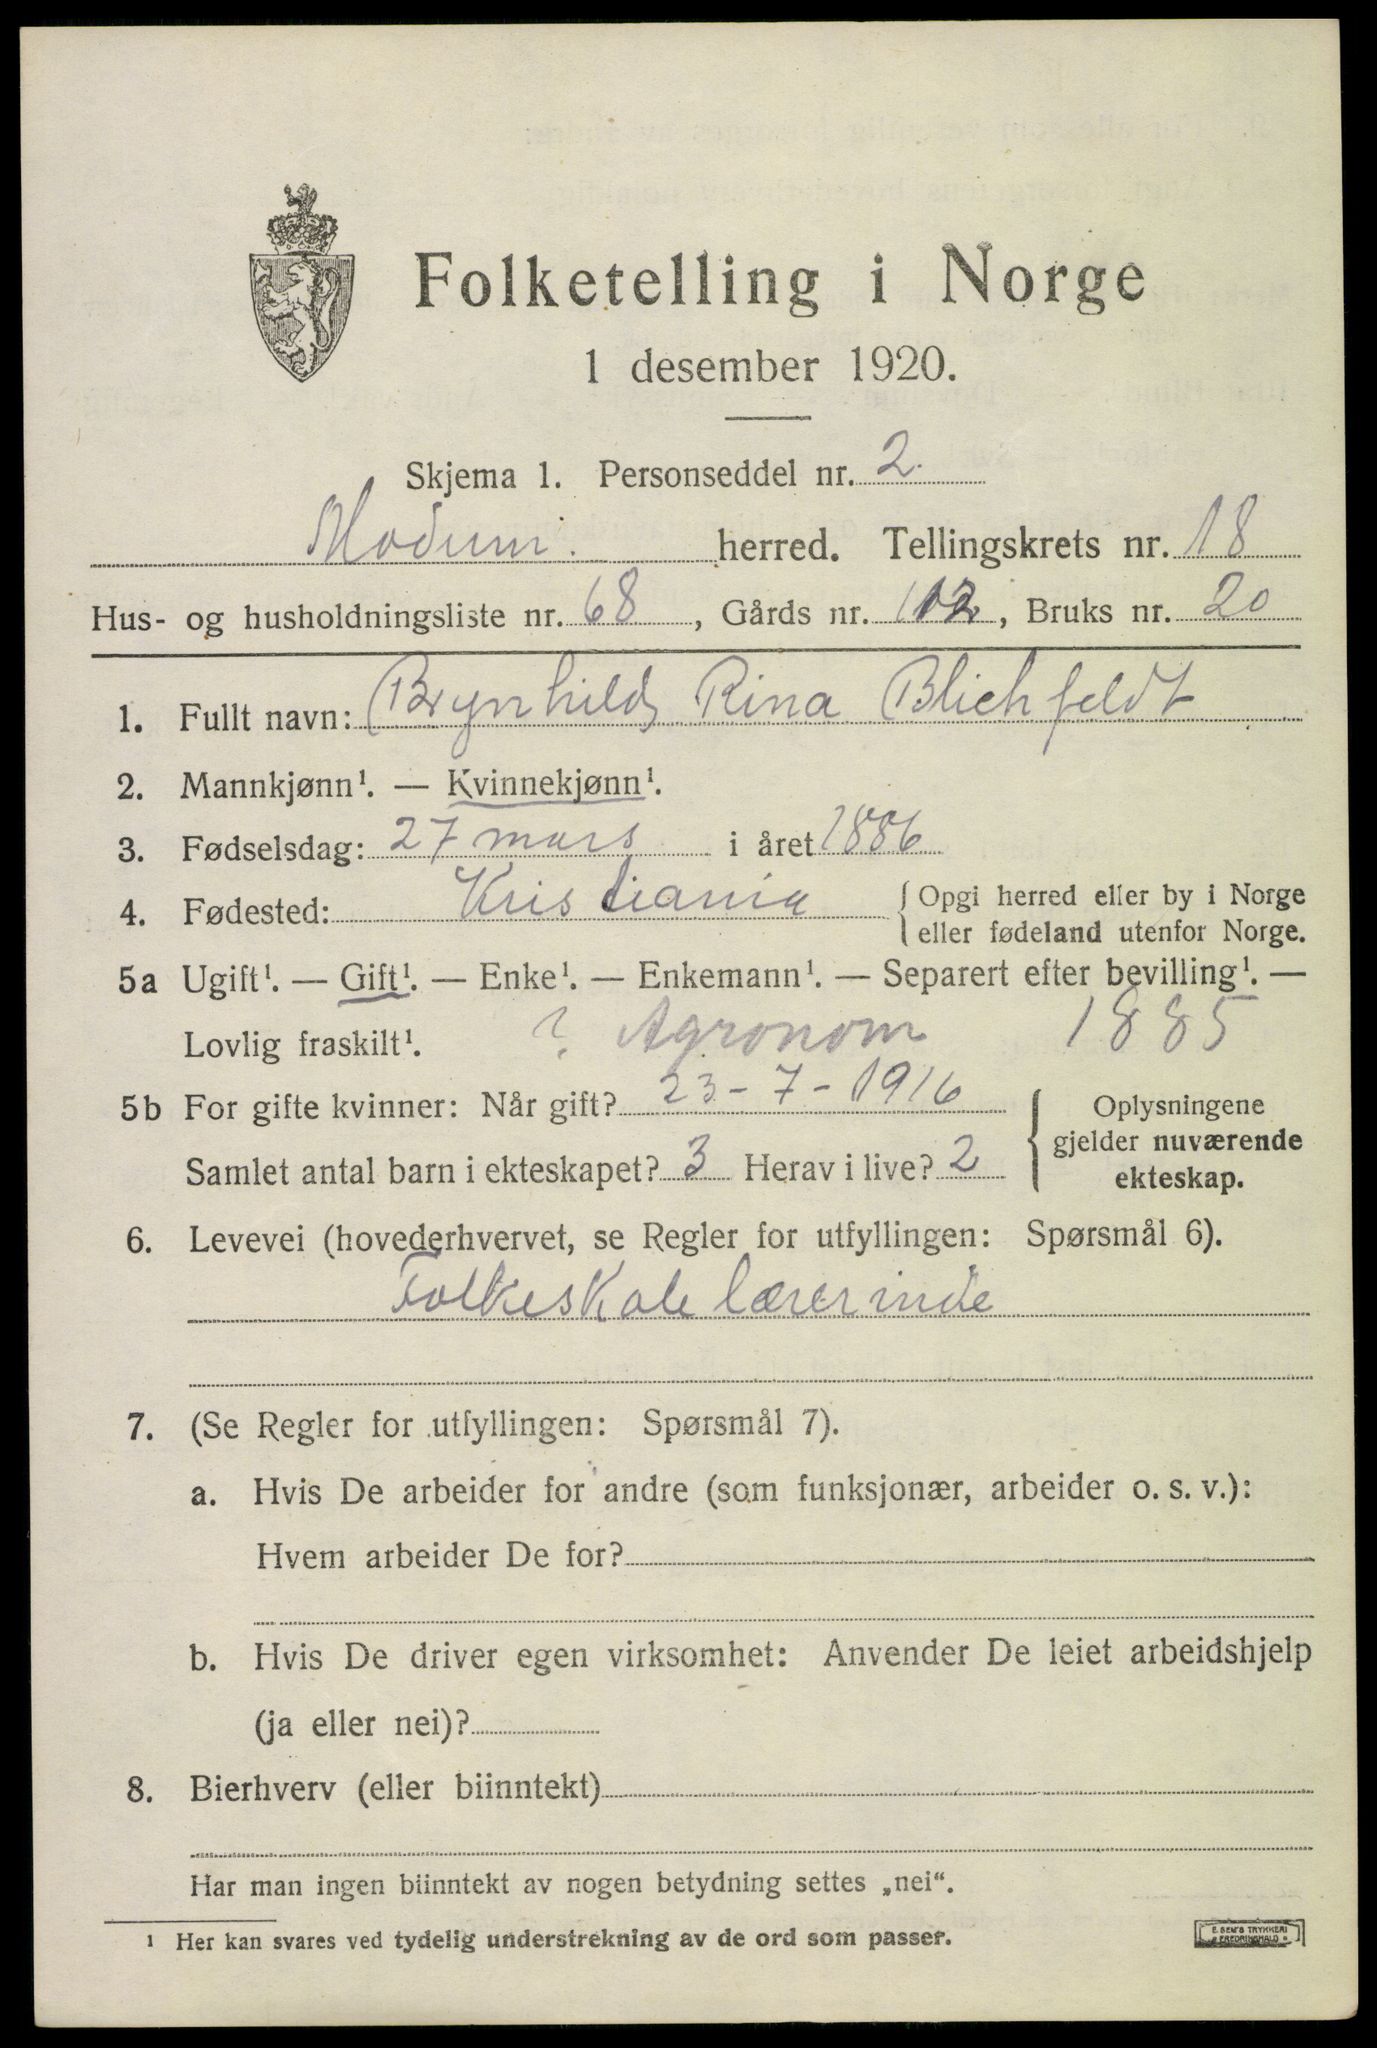 Folketelling i Norge
1 desember 1920.
Skjema 1. Personseddel nr. 2.
Modum. herred. Tellingskrets nr. 18
Hus- og husholdningsliste nr. 68, Gårds nr. 112, Bruks nr. 20
1. Fullt navn: Brynhild Rina Blichfeldt
2. Mannkjønn¹. — Kvinnekjønn¹.
3. Fødselsdag: 27 mars i året 1886
4. Fødested: Kristiania { Opgi herred eller by i Norge
eller fødeland utenfor Norge.
5a Ugift¹. — Gift¹. — Enke¹. — Enkemann¹. — Separert efter bevilling¹. —
Lovlig fraskilt¹. ? Agronom 1885
5b For gifte kvinner: Når gift? 23-7-1916 { Oplysningene
gjelder nuværende
Samlet antal barn i ekteskapet? 3 Herav i live? 2 ekteskap.
6. Levevei (hovederhvervet, se Regler for utfyllingen: Spørsmål 6).
Folkeskolelærerinde
7. (Se Regler for utfyllingen: Spørsmål 7).
a. Hvis De arbeider for andre (som funksjonær, arbeider o. s. v.):
Hvem arbeider De for?
b. Hvis De driver egen virksomhet: Anvender De leiet arbeidshjelp
(ja eller nei)?
8. Bierhverv (eller biinntekt)
Har man ingen biinntekt av nogen betydning settes „nei“.
¹ Her kan svares ved tydelig understrekning av de ord som passer.
E. SEM'S TRYKKERI
FREDRIKSHALD